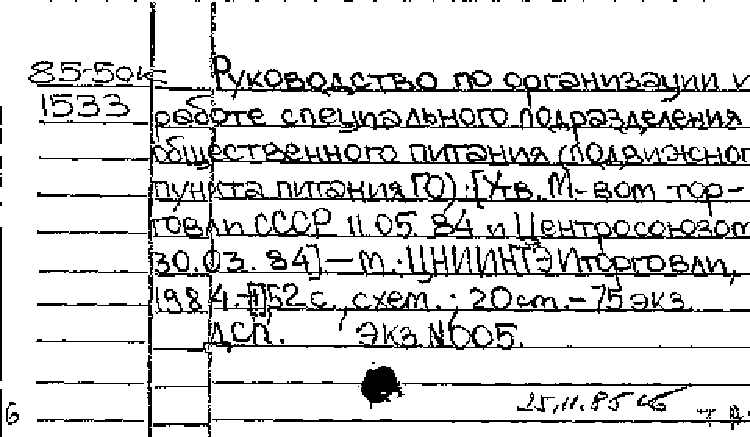 85-50к Руководство по организации и
1533 работе специального подразделения
общественного питания (подвижног
пункта питания ГО): [Утв. М-вом тор-
говли СССР 11.05.84 и Центросоюзом
30.03.84] — М.: ЦНИИНТЭИторговли,
1984.- 52 с., схем.; 20 см. - 75 экз.
ДСП. Экз N605.
25.11.85
6